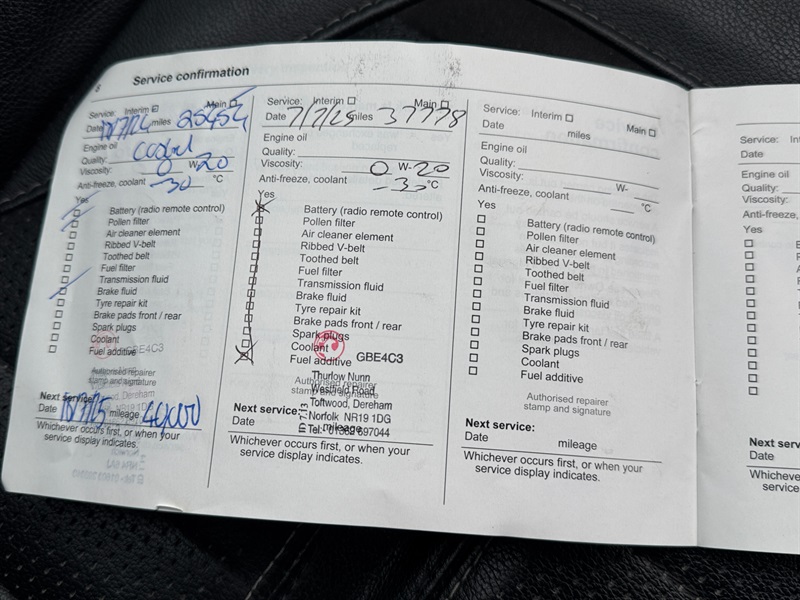 8
Service confirmation
Service: Interim Main
Date 10/7/24 miles 25454
Engine oil
Quality:
Viscosity: 0 W-20
Anti-freeze, coolant -30 °C
Yes
Battery (radio remote control)
Pollen filter
Air cleaner element
Ribbed V-belt
Toothed belt
Fuel filter
Transmission fluid
Brake fluid
Tyre repair kit
Brake pads front / rear
Spark plugs
Coolant
Fuel additive GBE4C3
Authorised repairer
stamp and signature
Next service:
Date 10/7/25 mileage 40,000
Whichever occurs first, or when your
service display indicates.
Service: Interim Main
Date 7/7/25 miles 37778
Engine oil
Quality:
Viscosity: 0 W-20
Anti-freeze, coolant -30 °C
Yes
Battery (radio remote control)
Pollen filter
Air cleaner element
Ribbed V-belt
Toothed belt
Fuel filter
Transmission fluid
Brake fluid
Tyre repair kit
Brake pads front / rear
Spark plugs
Coolant
Fuel additive GBE4C3
Thurlow Nunn
Authorised repairer
Westfield Road
stamp and signature
Toftwood, Dereham
Norfolk NR19 1DG
Next service:
Date mileage
Whichever occurs first, or when your
service display indicates.
Service: Interim Main
Date miles
Engine oil
Quality:
Viscosity: W-
Anti-freeze, coolant °C
Yes
Battery (radio remote control)
Pollen filter
Air cleaner element
Ribbed V-belt
Toothed belt
Fuel filter
Transmission fluid
Brake fluid
Tyre repair kit
Brake pads front / rear
Spark plugs
Coolant
Fuel additive
Authorised repairer
stamp and signature
Next service:
Date mileage
Whichever occurs first, or when your
service display indicates.
Service:
Date
Engine oil
Quality:
Viscosity:
Anti-freeze,
Yes
Next serv
Date
Whichever
service